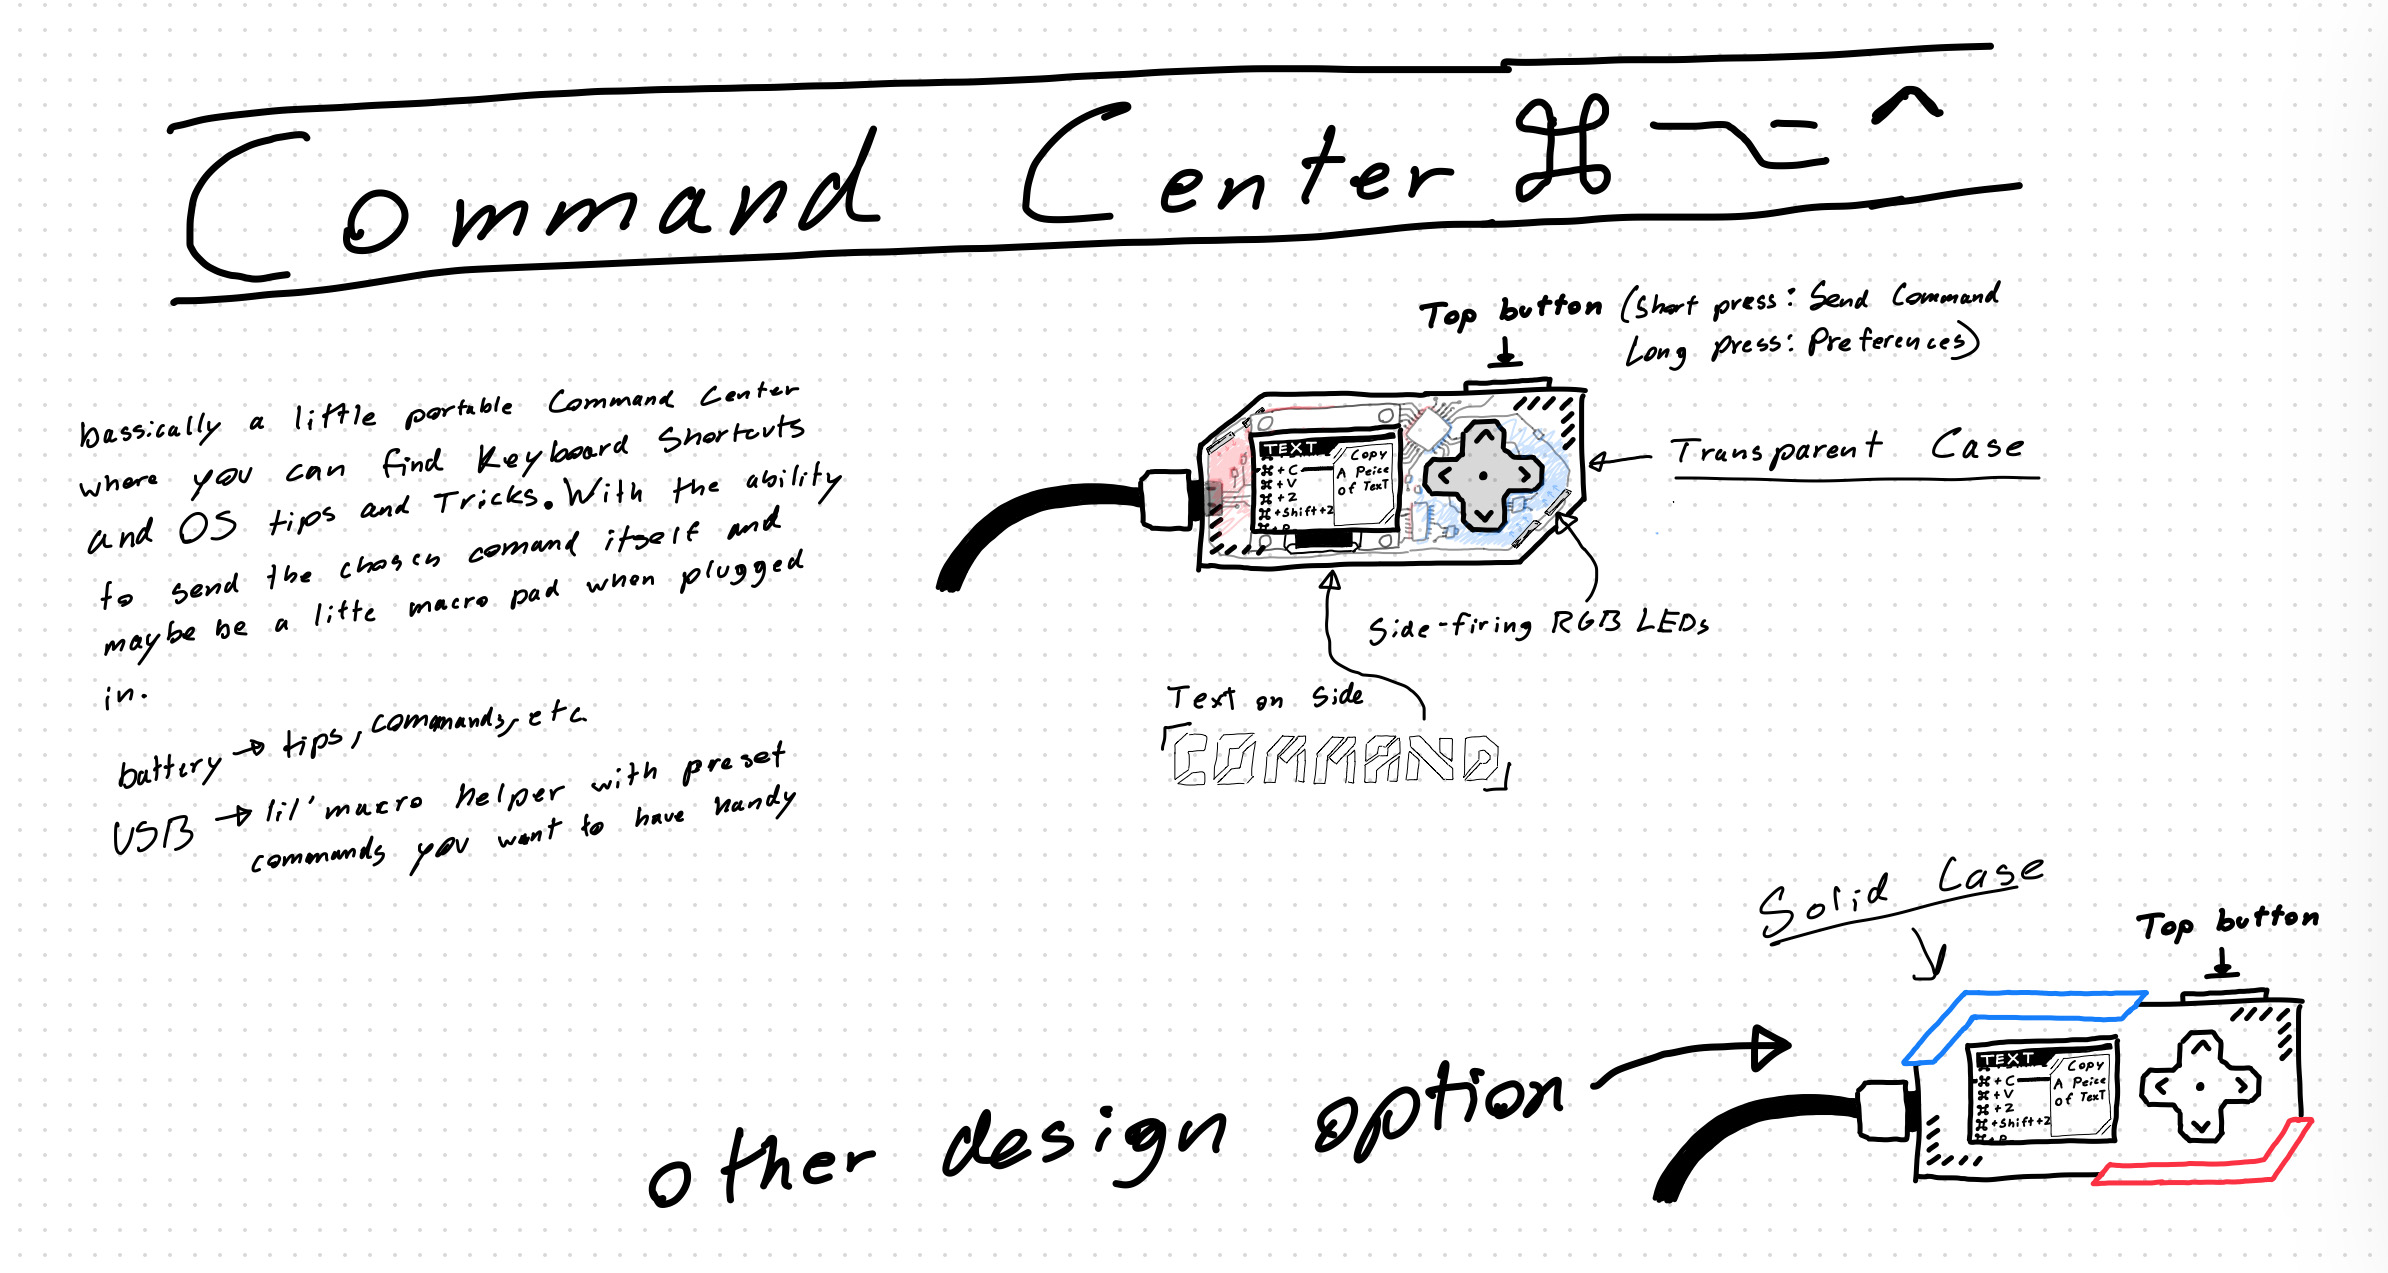 Command Center ⌘ ⌥ ^
bassically a little portable Command Center
where you can find Keyboard Shortcuts
and OS tips and Tricks. With the ability
to send the chosen comand itself and
maybe be a litte macro pad when plugged
in.
battery → tips, commands, etc
USB → lil' macro helper with preset
commands you want to have handy
Top button (Short press: Send Command
Long press: Preferences)
TEXT
⌘+C
⌘+V
⌘+Z
⌘+Shift+Z
⌘+P
Copy
A Peice
of TexT
← Transparent Case
Side-firing RGB LEDs
Text on side
「COMMAND」
Solid Case
Top button
TEXT
⌘+C
⌘+V
⌘+Z
⌘+Shift+Z
⌘+P
Copy
A Peice
of TexT
other design option →